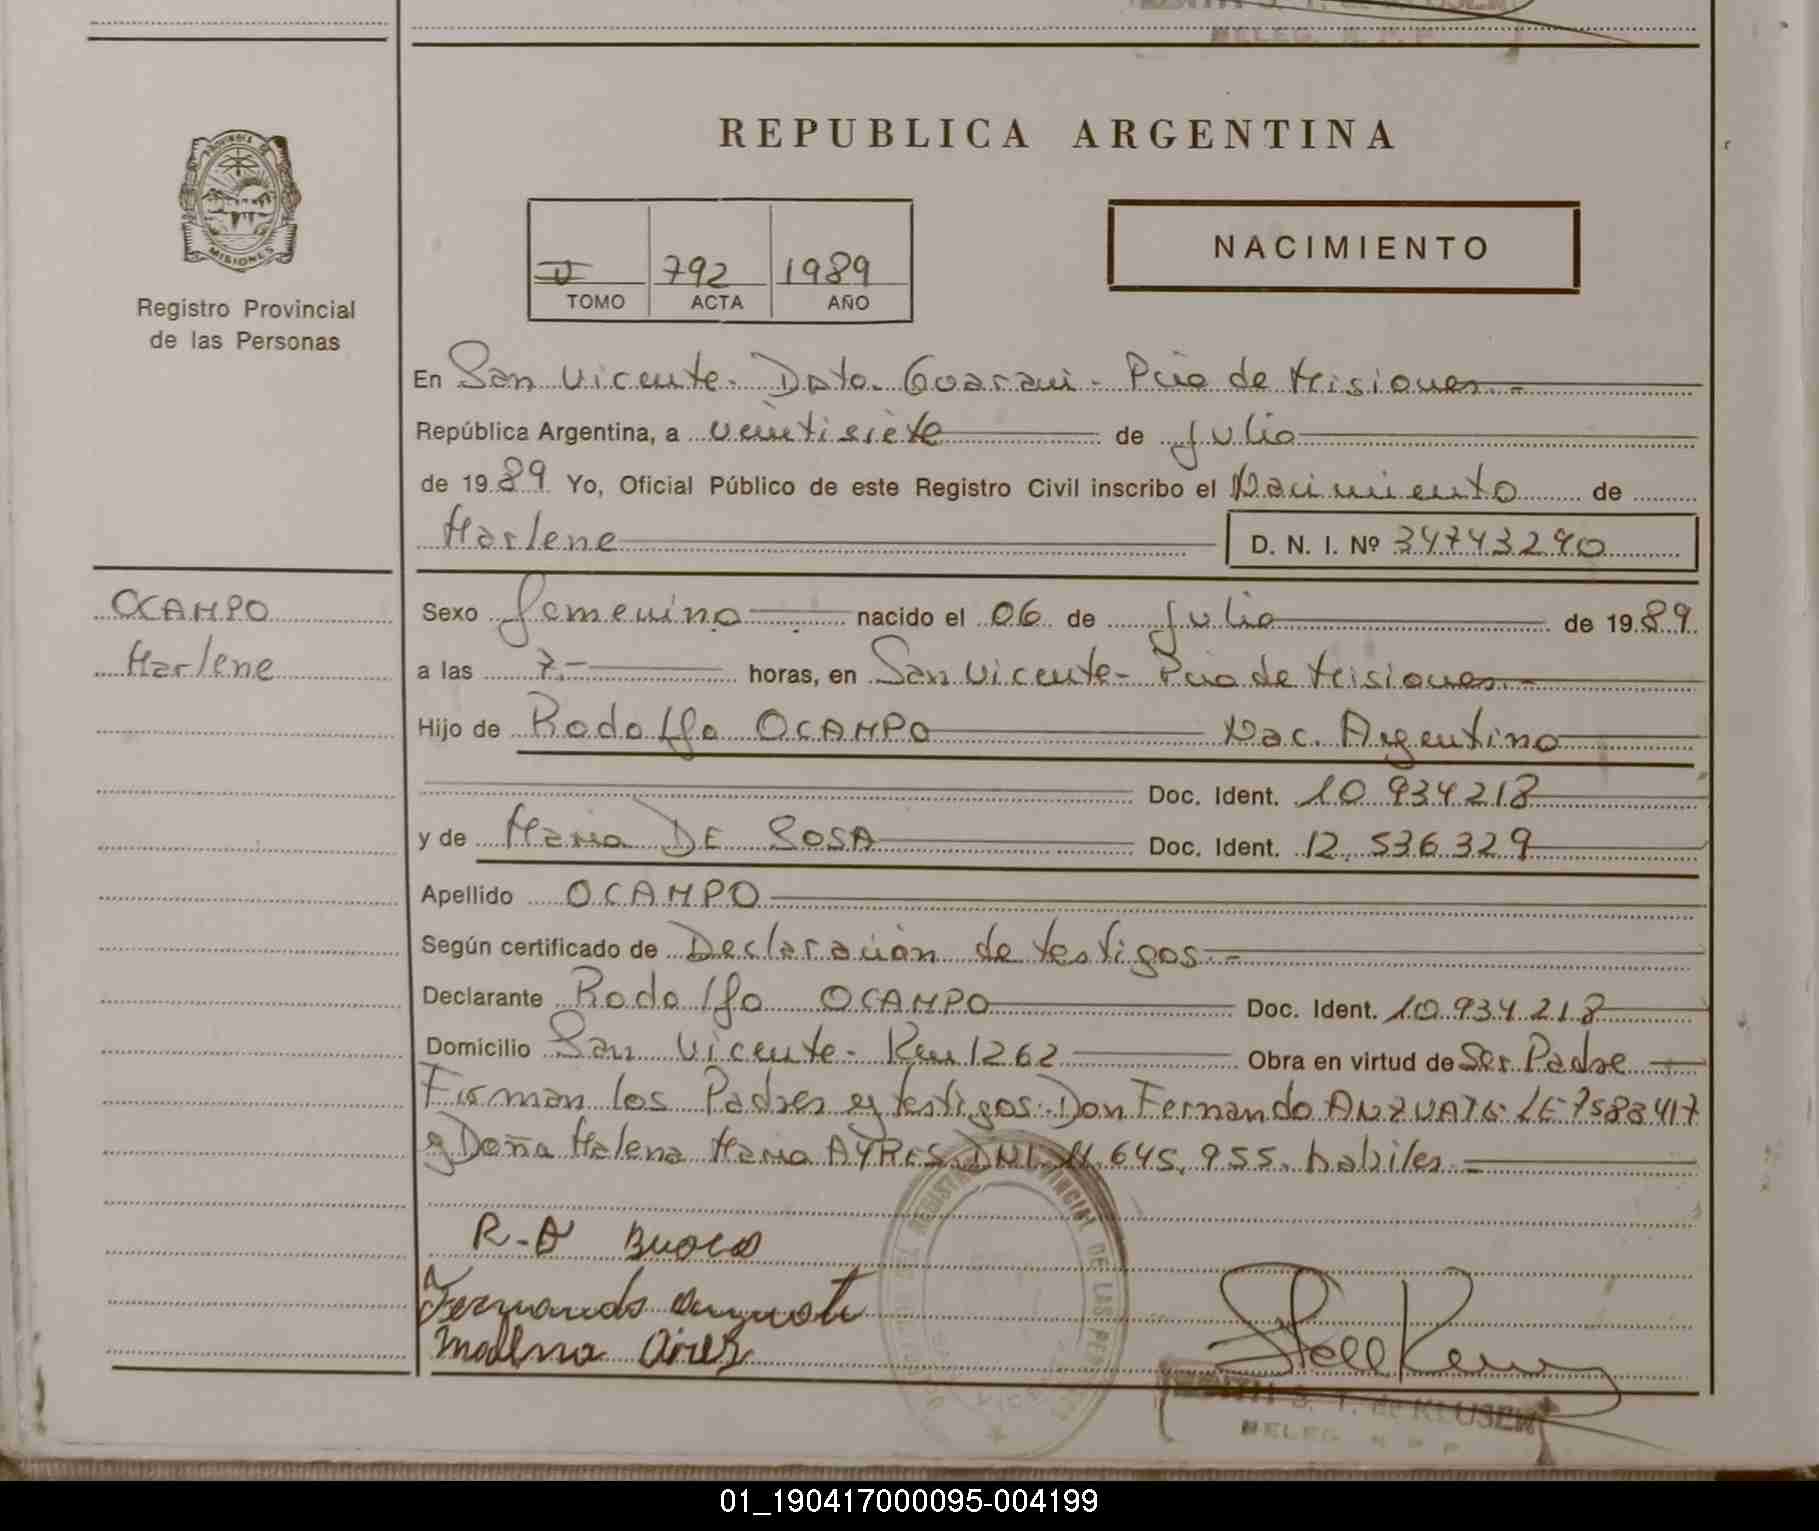 REPUBLICA ARGENTINA
PROVINCIA DE
MISIONES
Registro Provincial
de las Personas
792 1989
TOMO ACTA AÑO
NACIMIENTO
En San Vicente. Dpto. Guarani - Pcia de Misiones.-
República Argentina, a veintisiete de Julio
de 1989 Yo, Oficial Público de este Registro Civil inscribo el Nacimiento de
Marlene D. N. I. Nº 34743290
OCAMPO
Marlene
Sexo femenino nacido el 06 de Julio de 1989
a las 7.- horas, en San Vicente - Pcia de Misiones.-
Hijo de Rodolfo OCAMPO Nac. Argentino
Doc. Ident. 10.934218
y de Maria DE SOSA Doc. Ident. 12.536329
Apellido OCAMPO
Según certificado de Declaración de testigos.-
Declarante Rodolfo OCAMPO Doc. Ident. 10.934.218
Domicilio San Vicente - Km 1262 Obra en virtud de Ser Padre
Firman los Padres y testigos: Don Fernando ANZUATE LE 7588417
y Doña Malena Maria AYRES DNI. 11.645.955. habiles.-
REGISTRO PROVINCIAL DE LAS PER
Fernando
S. T. de KLUSEN
DELEG. R. P. P.
01_190417000095-004199